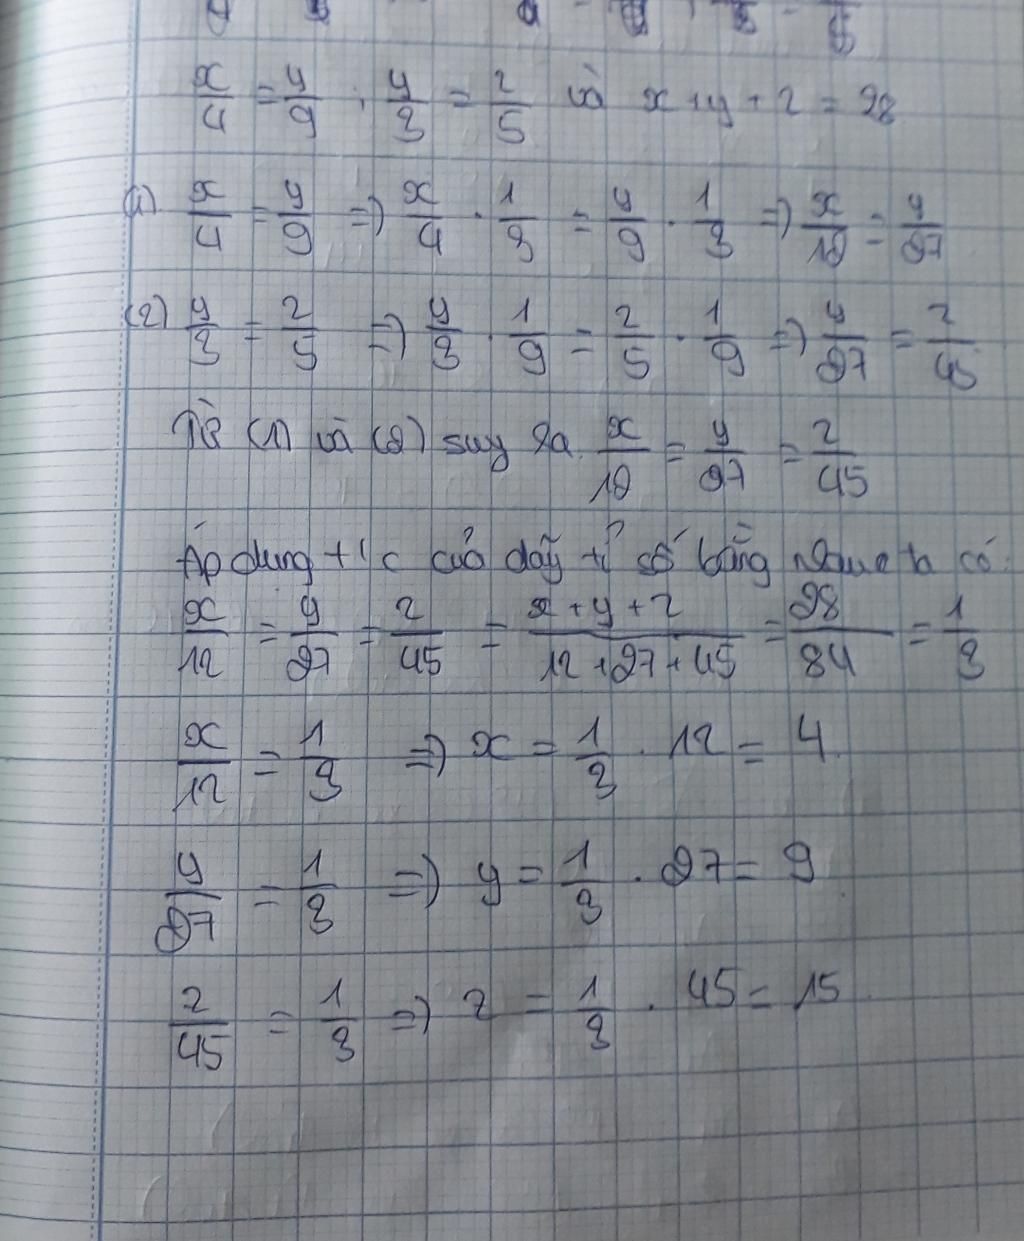 x/4 = y/9 ; y/3 = z/5 và x + y + z = 28
(1) x/4 = y/9 => x/4 . 1/3 = y/9 . 1/3 => x/12 = y/27
(2) y/3 = z/5 => y/3 . 1/9 = z/5 . 1/9 => y/27 = z/45
Từ (1) và (2) suy ra x/12 = y/27 = z/45
Áp dụng t/c của dãy tỉ số bằng nhau ta có:
x/12 = y/27 = z/45 = (x + y + z)/(12 + 27 + 45) = 28/84 = 1/3
x/12 = 1/3 => x = 1/3 . 12 = 4
y/27 = 1/3 => y = 1/3 . 27 = 9
z/45 = 1/3 => z = 1/3 . 45 = 15